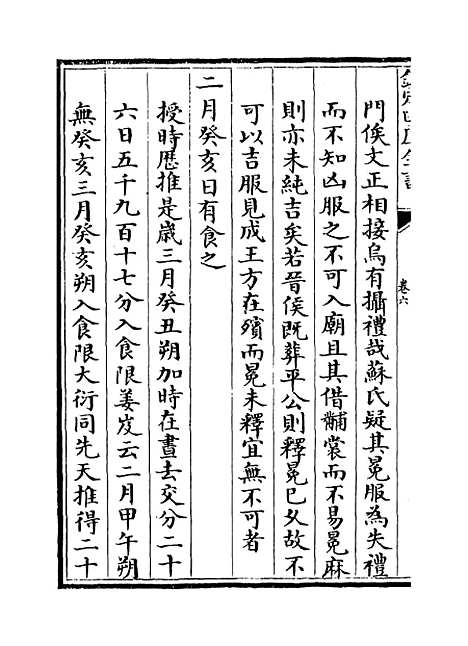 欽定四庫全書
卷六
門俟文正相接烏有攝禮哉蘇氏疑其冕服為失禮
而不知凶服之不可入廟且其借黼裳而不易冕麻
則亦未純吉矣若晉侯既葬平公則釋冕已久故不
可以吉服見成王方在殯而冕未釋宜無不可者
二月癸亥日有食之
授時歷推是歲三月癸丑朔加時在晝去交分二十
六日五千九百十七分入食限姜岌云二月甲午朔
無癸亥三月癸亥朔入食限大衍同先天推得二十